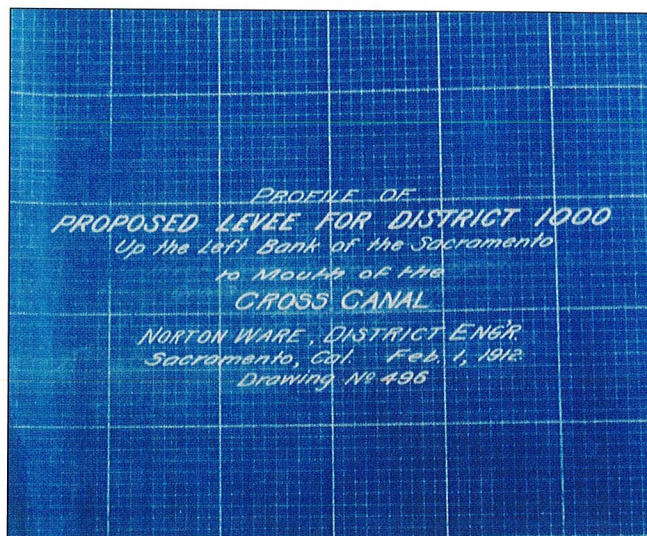 PROFILE OF
PROPOSED LEVEE FOR DISTRICT 1000
Up the Left Bank of the Sacramento
to Mouth of the
CROSS CANAL
NORTON WARE, DISTRICT ENG'R.
Sacramento, Cal. Feb. 1, 1912.
Drawing Nº 496